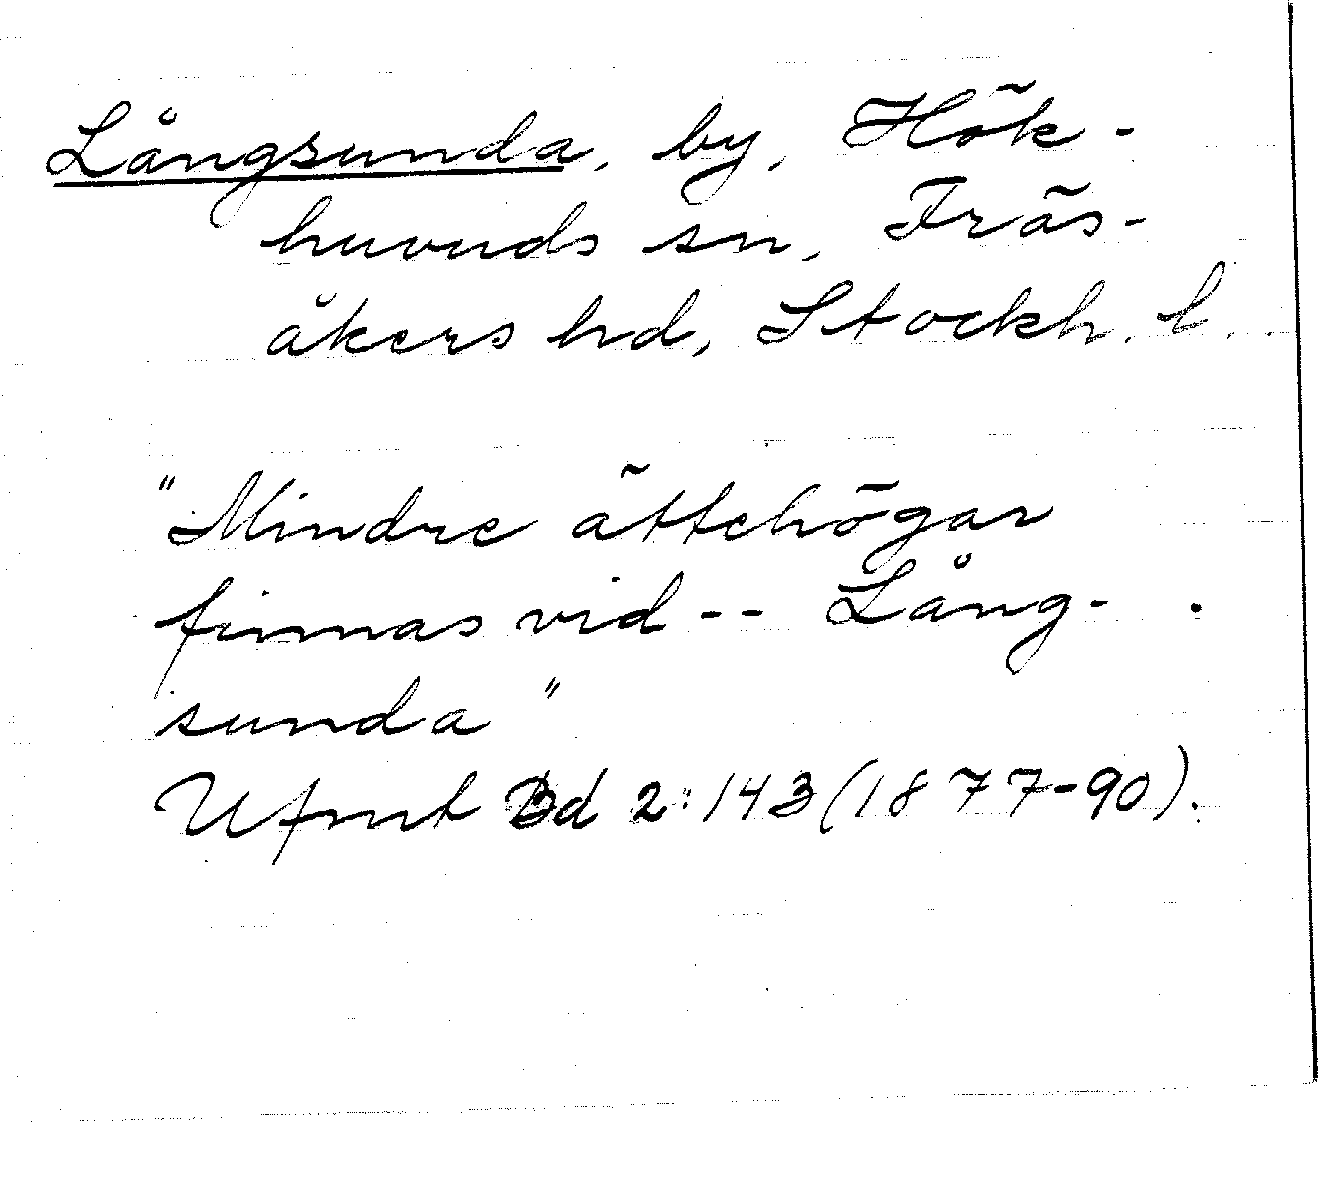 Långsunda, by, Hök-
huvuds sn, Frös-
åkers hd, Stockh. l.
"Mindre ättehögar
finnas vid -- Lång-
sunda"
Ufmt Bd 2:143 (1877-90).